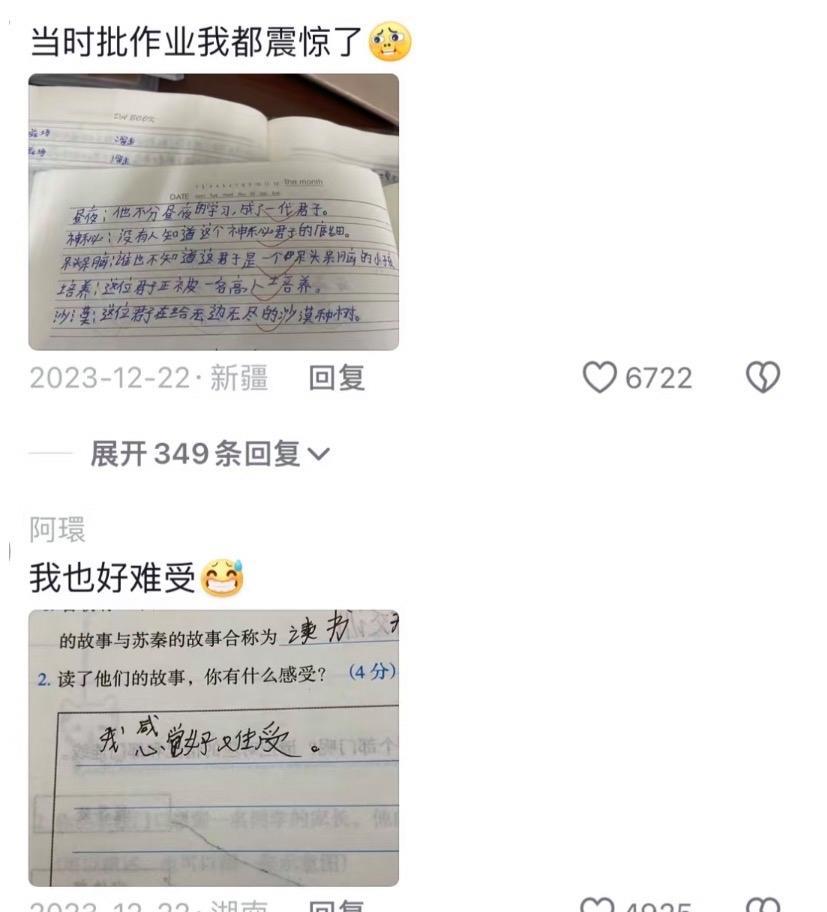 当时批作业我都震惊了
DIARY BOOK
DATE
the month
昼夜：他不分昼夜的学习，成了一代君子。
神秘：没有人知道这个神秘君子的底细。
呆头呆脑：谁也不知道这君子是一个呆头呆脑的小孩
培养：这位君子正被一名高人培养。
沙漠：这位君子在给无边无尽的沙漠种树。
2023-12-22·新疆 回复 6722
展开349条回复
阿環
我也好难受
的故事与苏秦的故事合称为 读书
2. 读了他们的故事，你有什么感受？（4分）
我感觉好难受。
2023-12-22·湖南 回复 4925